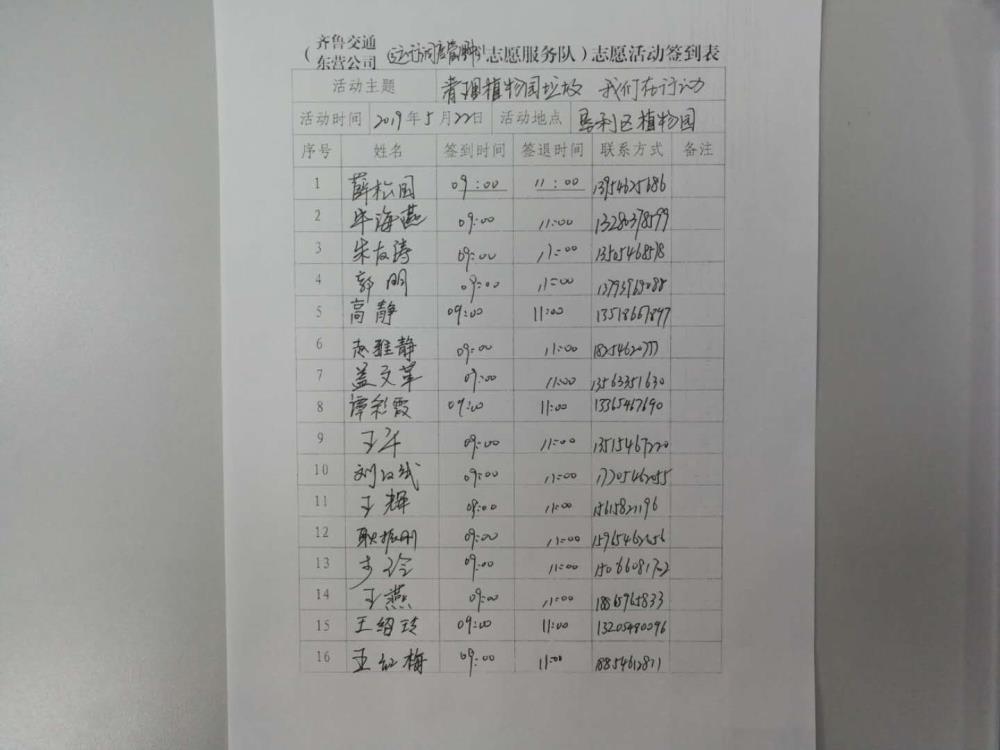 (齐鲁交通东营公司 志愿服务队)志愿活动签到表
活动主题 清理植物园垃圾 我们在行动
活动时间 2019年5月22日 活动地点 垦利区植物园
序号 姓名 签到时间 签退时间 联系方式 备注
1 薛松国 09:00 11:00 13954625686
2 牟海燕 09:00 11:00 13280378599
3 朱友涛 09:00 11:00 13505468518
4 郭明 09:00 11:00
5 高静 09:00 11:00 13518667897
6 赵雅静 09:00 11:00 18254620777
7 盖文革 09:00 11:00 13563351630
8 谭彩霞 09:00 11:00 13365467690
9 王军 09:00 11:00 13515467220
10 09:00 11:00 17705462055
11 王辉 09:00 11:00
12 耿振刚 09:00 11:00
13 09:00 11:00 15066081702
14 王燕 09:00 11:00 18865965833
15 王绍玲 09:00 11:00 13205490096
16 王红梅 09:00 11:00 18854612811